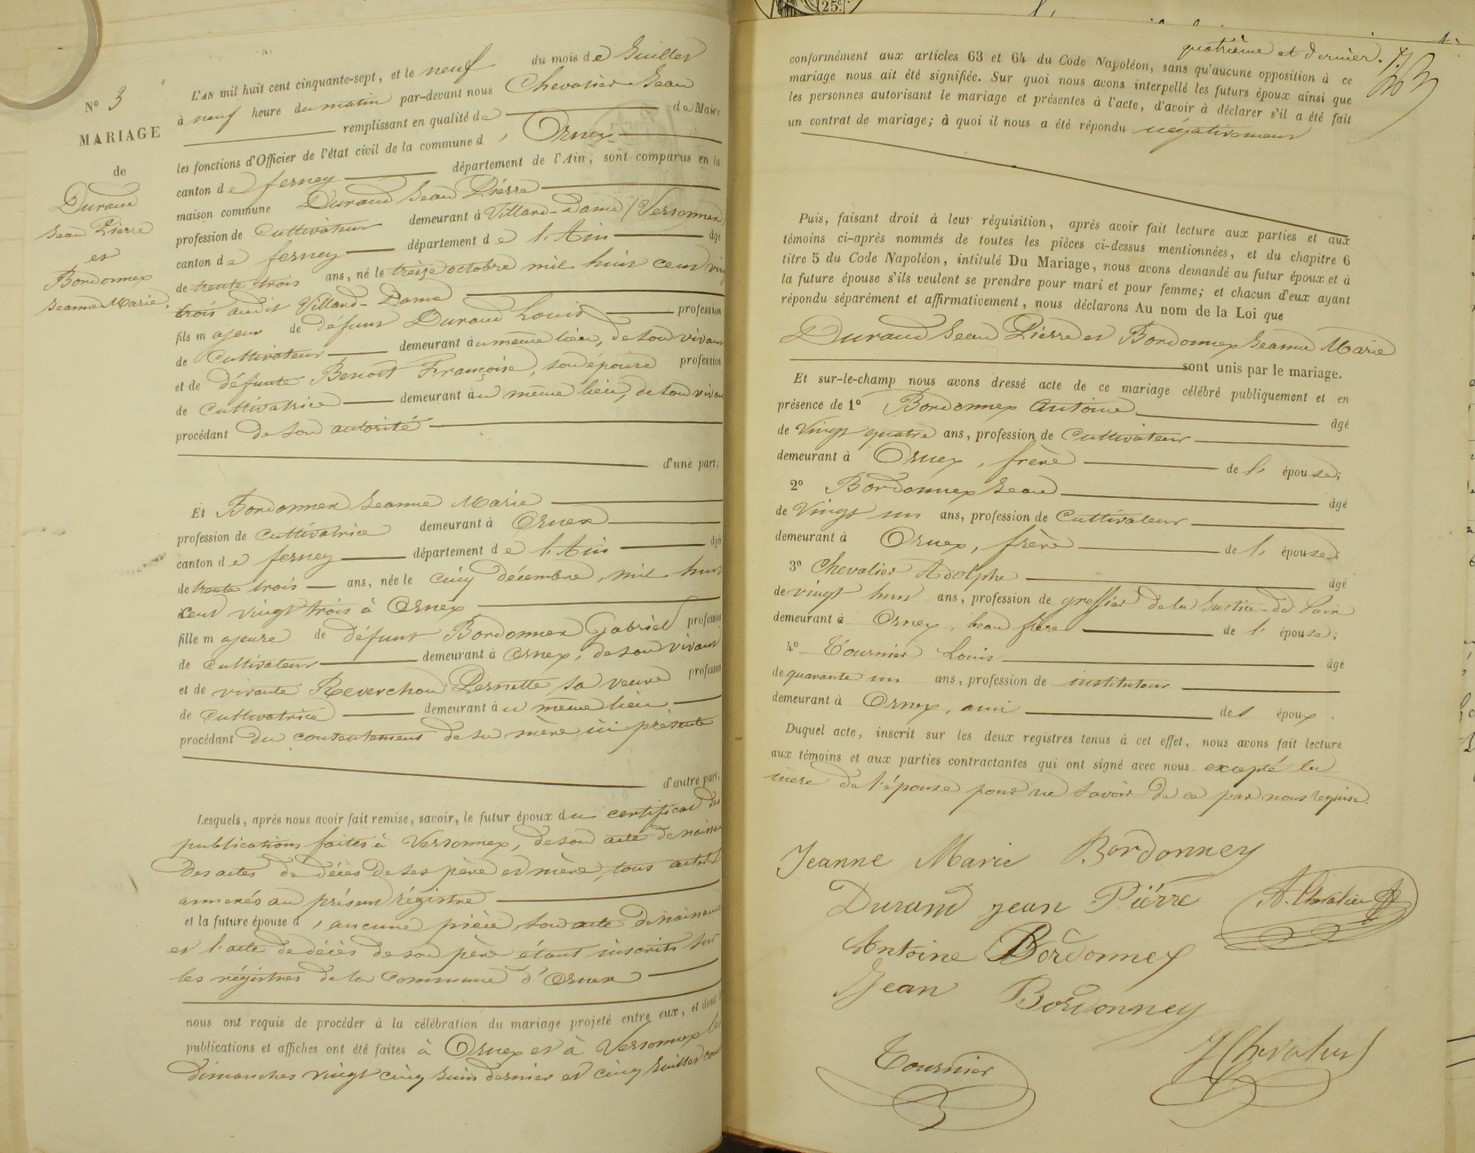 N° 3
MARIAGE
de
Durand
Jean Pierre
et
Bordonnex
Jeanne Marie.
L'AN mil huit cent cinquante-sept, et le neuf du mois de Juillet
à neuf heure du matin par-devant nous Chevalier Jean
remplissant en qualité de de Maire
les fonctions d'Officier de l'état civil de la commune d' Ornex
canton de ferney département de l'Ain, sont comparus en la
maison commune Durand Jean Pierre
profession de Cultivateur demeurant à Villard-Dame (Versonnex)
canton de ferney département de l'Ain âgé
de trente trois ans, né le treize octobre mil huit cent vingt
trois audit Villard-Dame
fils majeur de défunt Durand Louis profession
de Cultivateur demeurant au même lieu, de son vivant
et de défunte Benoit Françoise, son épouse profession
de Cultivatrice demeurant au même lieu, de son vivant
procédant de son autorité
d'une part;
Et Bordonnex Jeanne Marie
profession de Cultivatrice demeurant à Ornex
canton de ferney département de l'Ain âgé
de trente trois ans, née le cinq décembre, mil huit
cent vingt trois à Ornex
fille majeure de défunt Bordonnex Gabriel profession
de Cultivateur demeurant à Ornex, de son vivant
et de vivante Reverchon Pernette sa veuve profession
de Cultivatrice demeurant au même lieu
procédant du consentement de sa mère ici présente
d'autre part;
Lesquels, après nous avoir fait remise, savoir, le futur époux du certificat des
publications faites à Versonnex, de son acte de naissance
des actes de décès de ses père et mère, tous actes
annexés au présent régistre
et la future épouse d'aucune pièce son acte de naissance
et l'acte de décès de son père étant inscrits sur
les régistres de la Commune d'Ornex
nous ont requis de procéder à la célébration du mariage projeté entre eux, et dont
publications et affiches ont été faites à Ornex et à Versonnex les
dimanches vingt cinq Juin dernier et cinq Juillet cou
quatrième et dernier.
conformément aux articles 63 et 64 du Code Napoléon, sans qu'aucune opposition à ce
mariage nous ait été signifiée. Sur quoi nous avons interpellé les futurs époux ainsi que
les personnes autorisant le mariage et présentes à l'acte, d'avoir à déclarer s'il a été fait
un contrat de mariage; à quoi il nous a été répondu négativement
Puis, faisant droit à leur réquisition, après avoir fait lecture aux parties et aux
témoins ci-après nommés de toutes les pièces ci-dessus mentionnées, et du chapitre 6
titre 5 du Code Napoléon, intitulé Du Mariage, nous avons demandé au futur époux et à
la future épouse s'ils veulent se prendre pour mari et pour femme; et chacun d'eux ayant
répondu séparément et affirmativement, nous déclarons Au nom de la Loi que
Durand Jean Pierre et Bordonnex Jeanne Marie
sont unis par le mariage.
Et sur-le-champ nous avons dressé acte de ce mariage célébré publiquement et en
présence de 1° Bordonnex Antoine âgé
de Vingt quatre ans, profession de Cultivateur
demeurant à Ornex, frère de l' épouse;
2° Bordonnex Jean âgé
de Vingt un ans, profession de Cultivateur
demeurant à Ornex, frère de l' épouse;
3° Chevalier Adolphe âgé
de vingt huit ans, profession de greffier de la Justice de Paix
demeurant à Ornex, beau frère de l' épouse;
4° Tournier Louis âge
de quarante un ans, profession de instituteur
demeurant à Ornex, ami de l' époux.
Duquel acte, inscrit sur les deux registres tenus à cet effet, nous avons fait lecture
aux témoins et aux parties contractantes qui ont signé avec nous excepté la
mère de l'épouse pour ne savoir de ce par nous requise.
Jeanne Marie Bordonney
Durand jean Pierre
A. Chevalier
Antoine Bordonney
Jean Bordonney
Tournier
J Chevalier